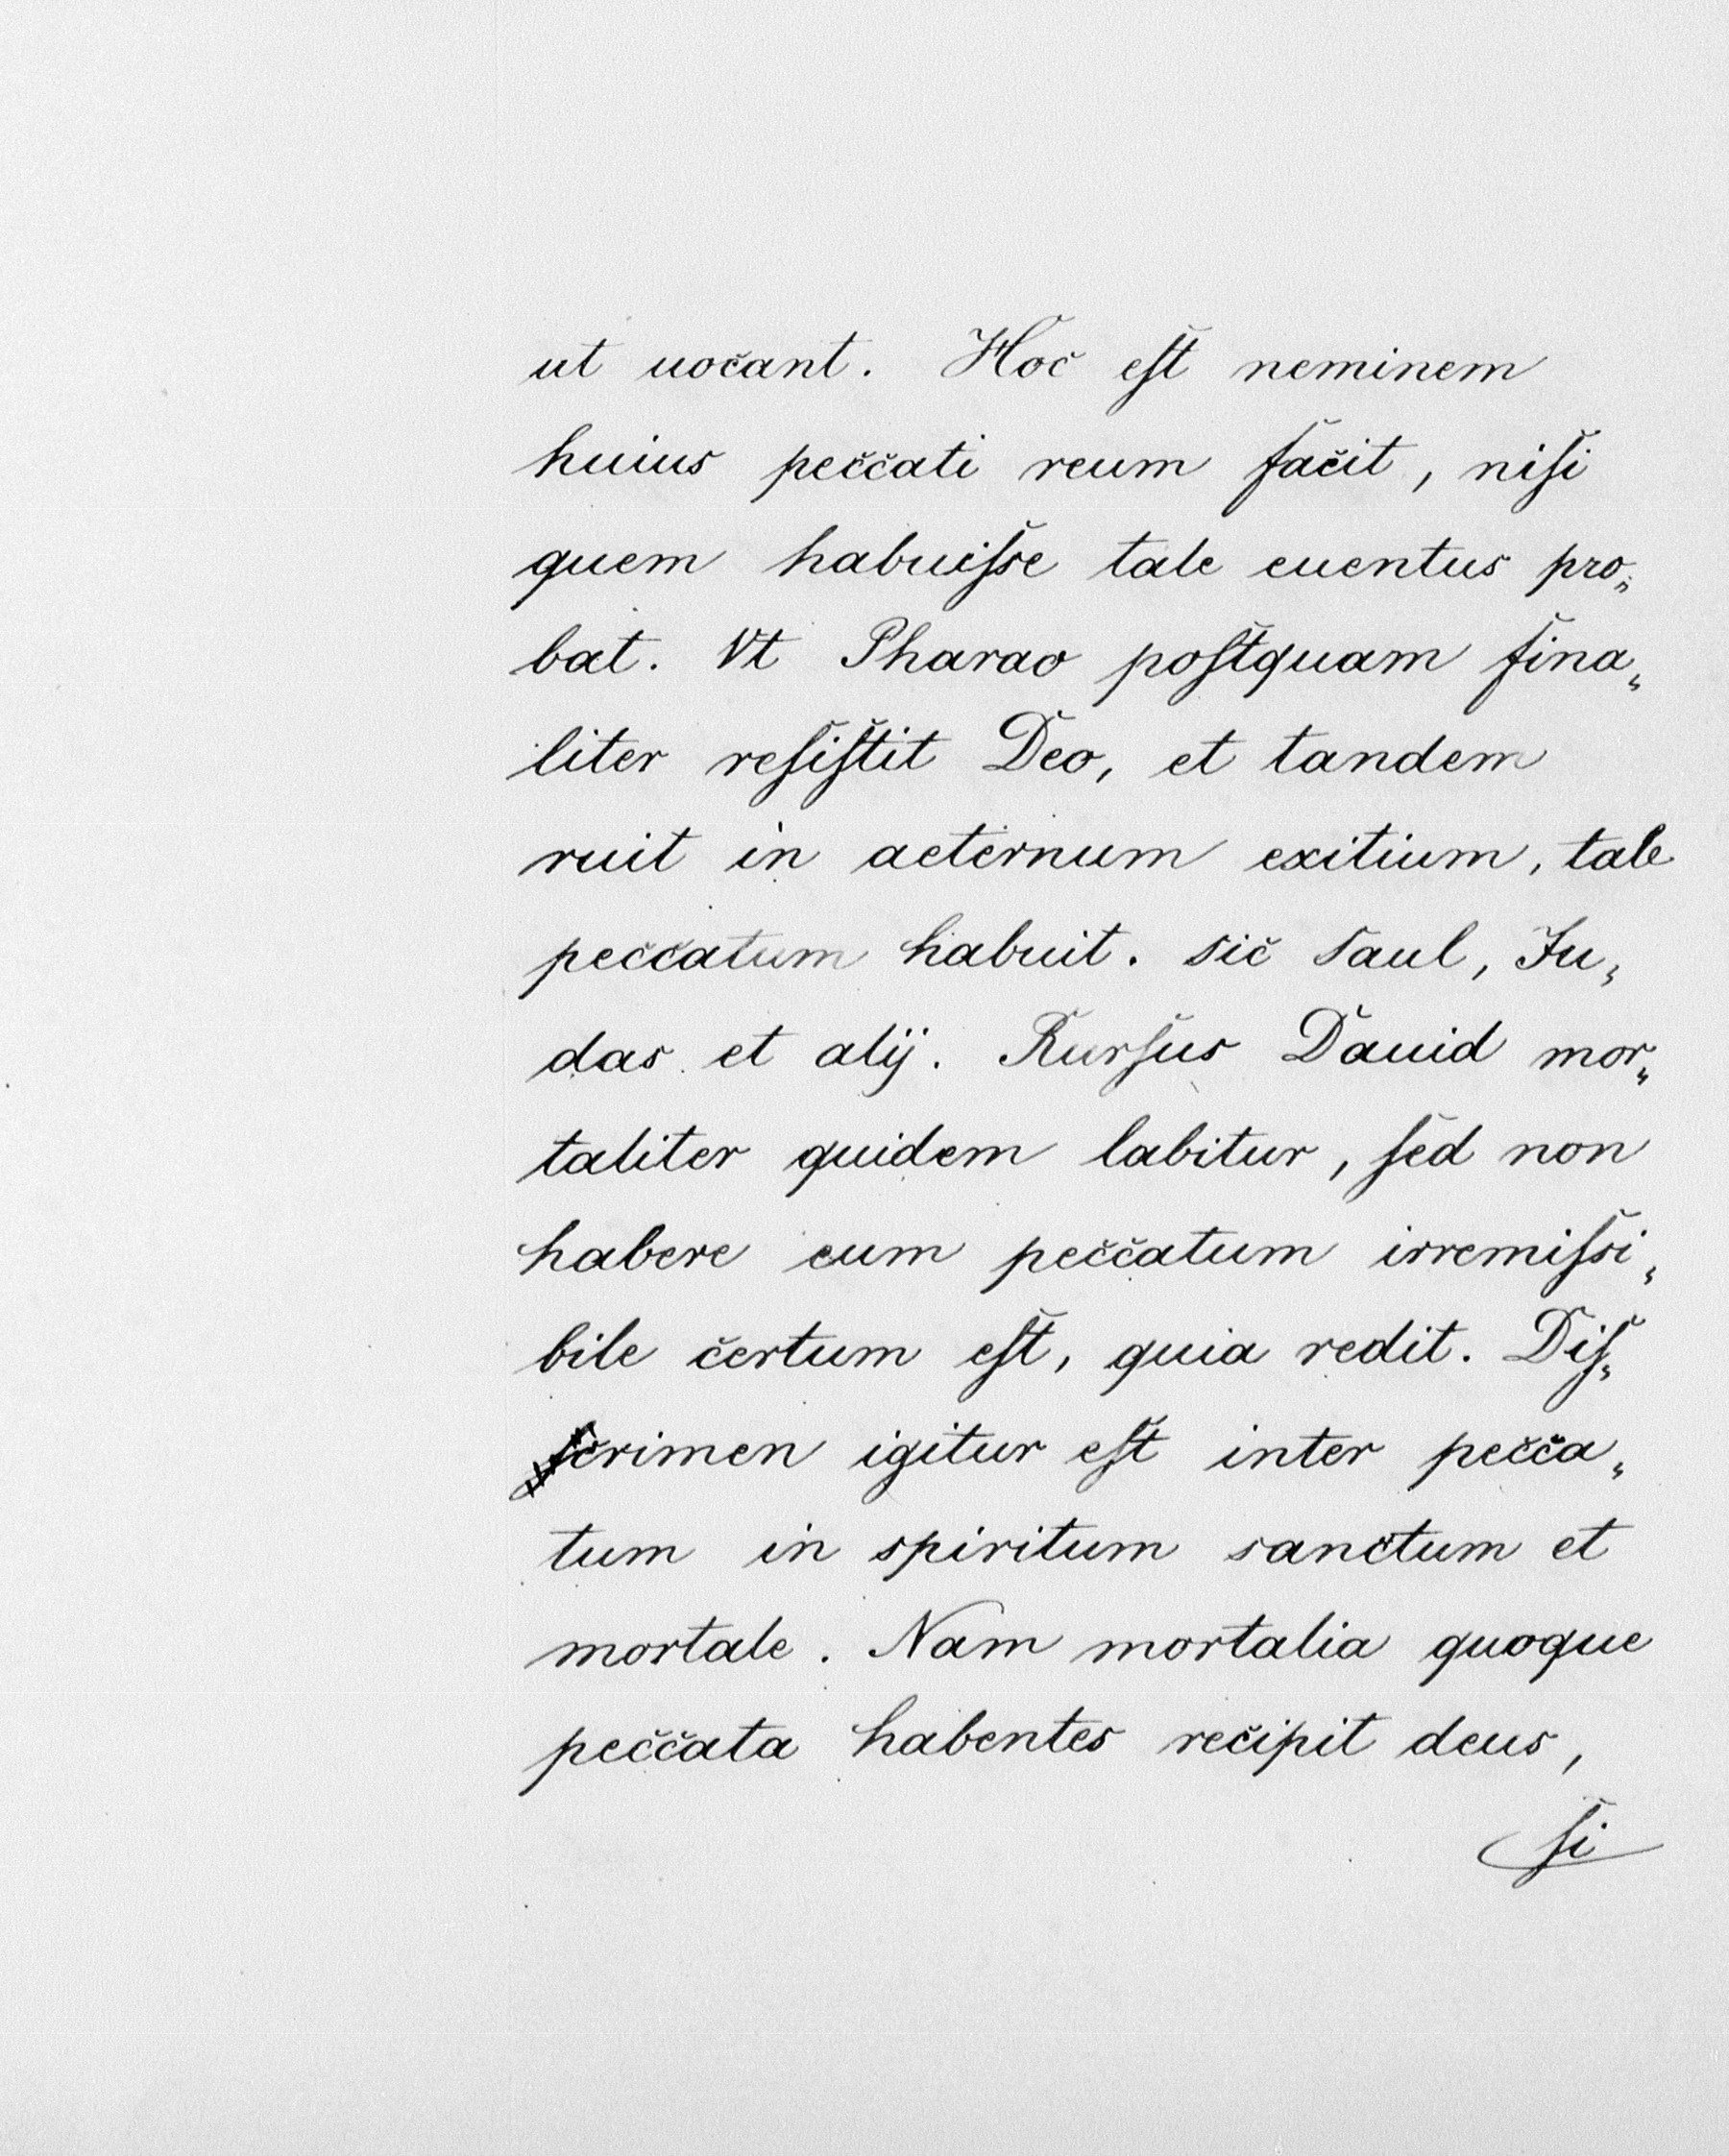 ut uočant. Hoč eſt neminem
huius peččati reum fačit, niſi
quem habuiſse tale euentus pro„
bat. Vt Pharao poſtquam fina„
liter reſiſtit Deo, et tandem
ruit in aeternum exitium, tale
peččatum habuit. sič Saul, Ju„
das et alij. Rurſus Dauid mor„
taliter quidem labitur, ſed non
habere eum peččatum irremiſsi„
bile čertum eſt, quia redit. Diſ„
črimen igitur eſt inter pečča„
tum in spiritum sančtum et
mortale. Nam mortalia quoque
peččata habentes rečipit deus,
ſi